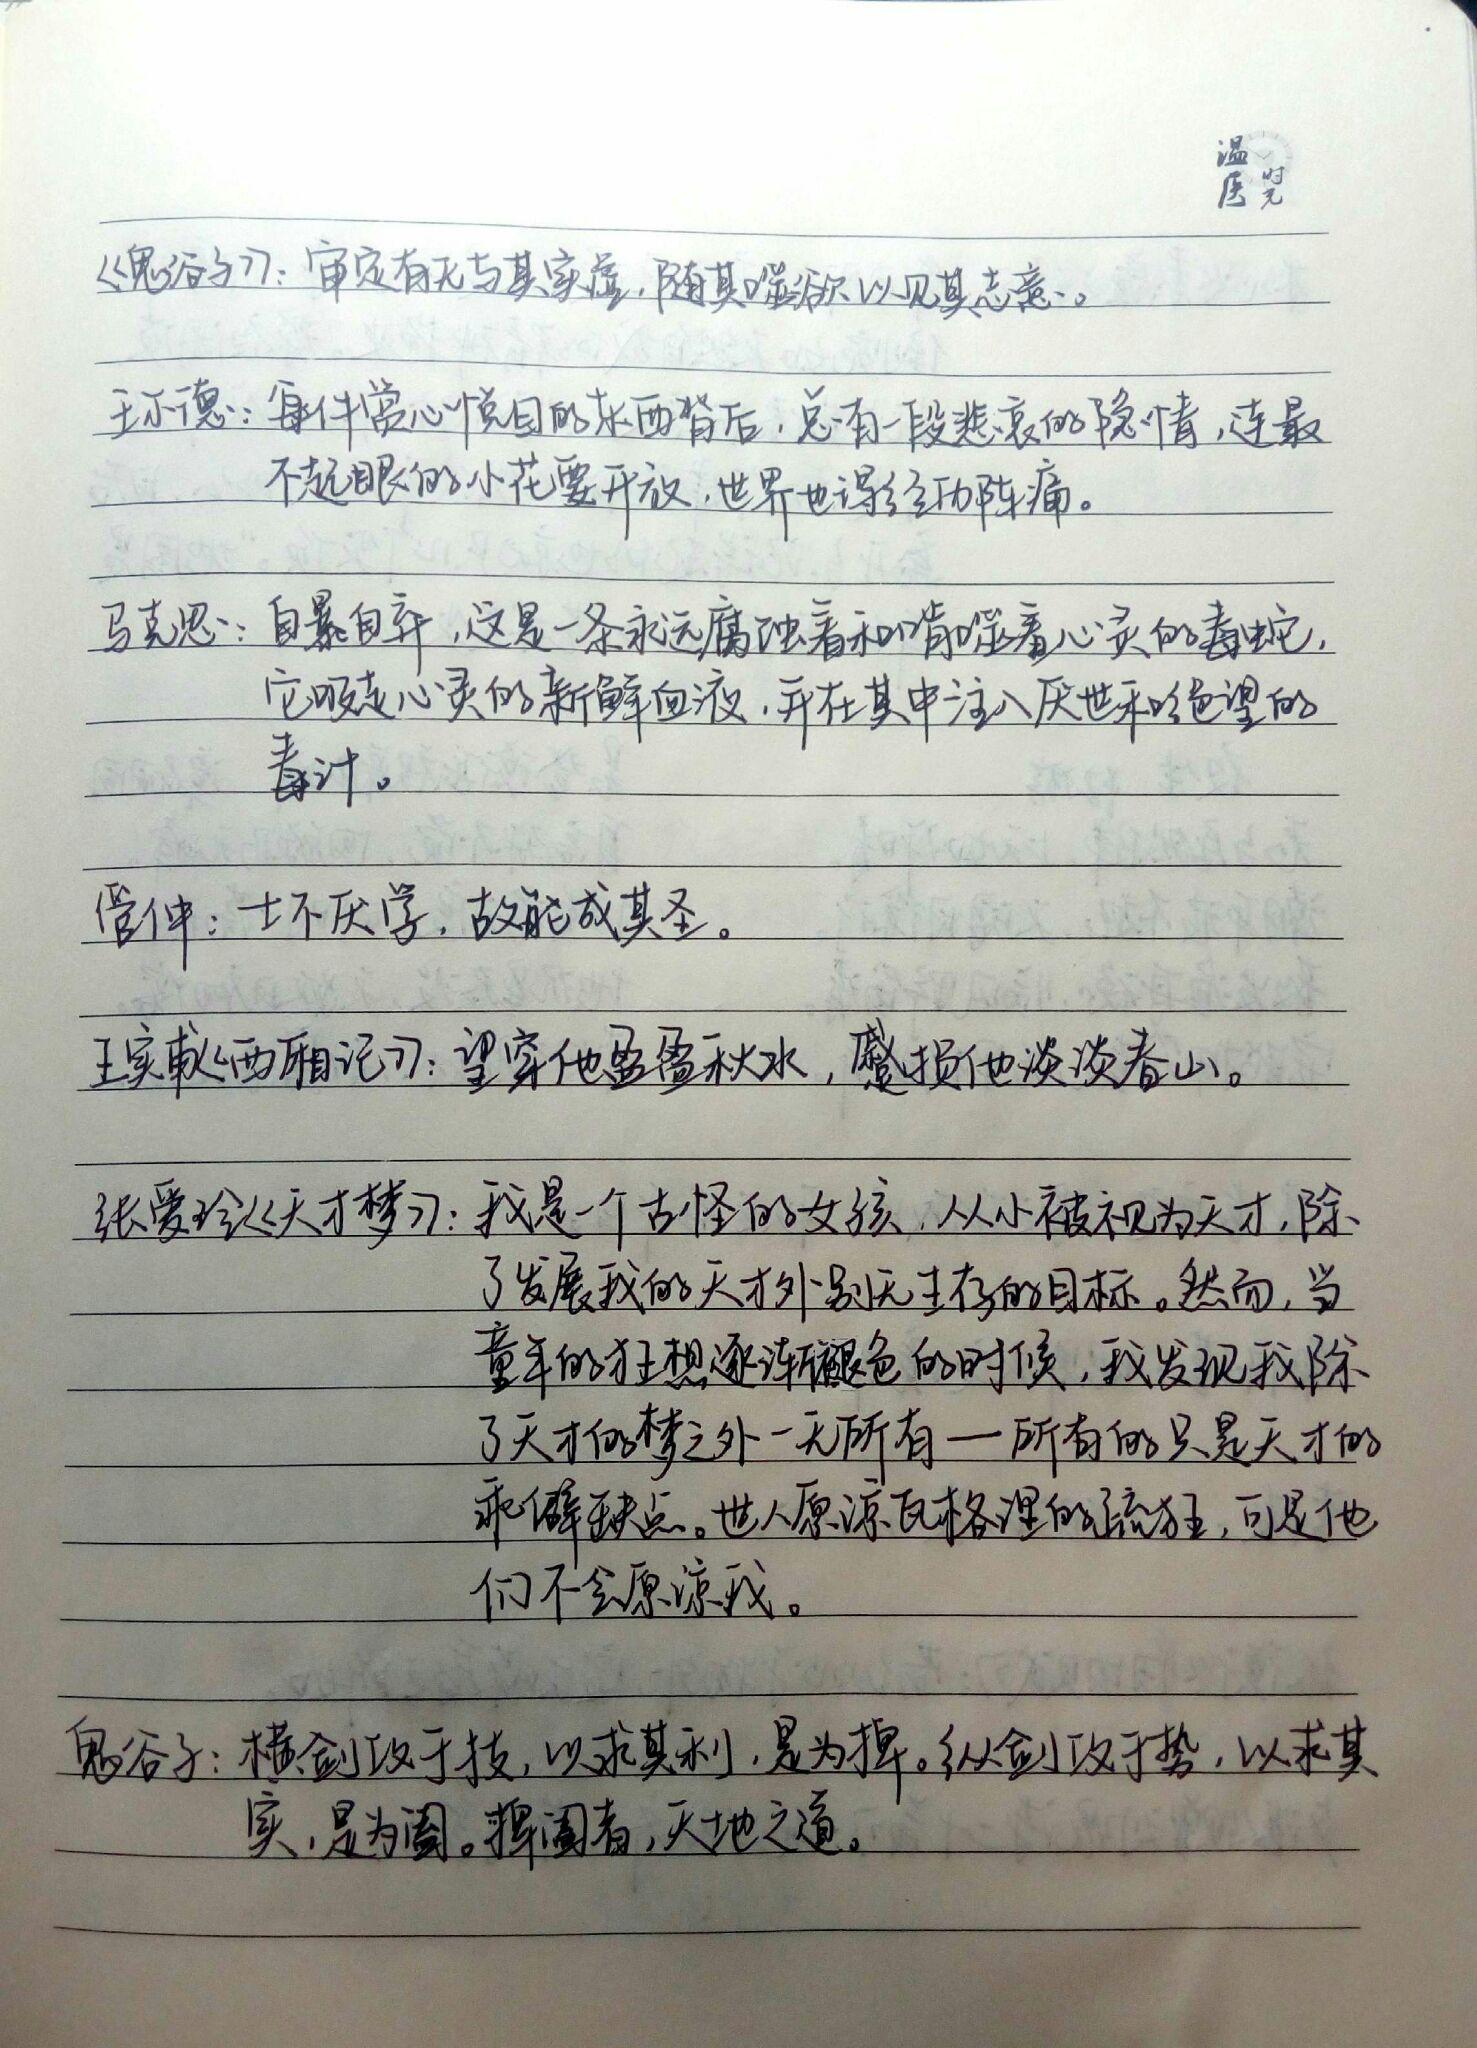 温医时光
《鬼谷子》：审定有无与其实虚，随其嗜欲以见其志意。
王尔德：每件赏心悦目的东西背后，总有一段悲哀的隐情，连最
不起眼的小花要开放，世界也得经历阵痛。
马克思：自暴自弃，这是一条永远腐蚀着和啃噬着心灵的毒蛇，
它吸走心灵的新鲜血液，并在其中注入厌世和绝望的
毒汁。
管仲：士不厌学，故能成其圣。
王实甫《西厢记》：望穿他盈盈秋水，蹙损他淡淡春山。
张爱玲《天才梦》：我是一个古怪的女孩，从小被视为天才，除
了发展我的天才外别无生存的目标。然而，当
童年的狂想逐渐褪色的时候，我发现我除
了天才的梦之外一无所有—所有的只是天才的
乖僻缺点。世人原谅瓦格涅的疏狂，可是他
们不会原谅我。
鬼谷子：横剑攻于技，以求其利，是为捭。纵剑攻于势，以求其
实，是为阖。捭阖者，天地之道。